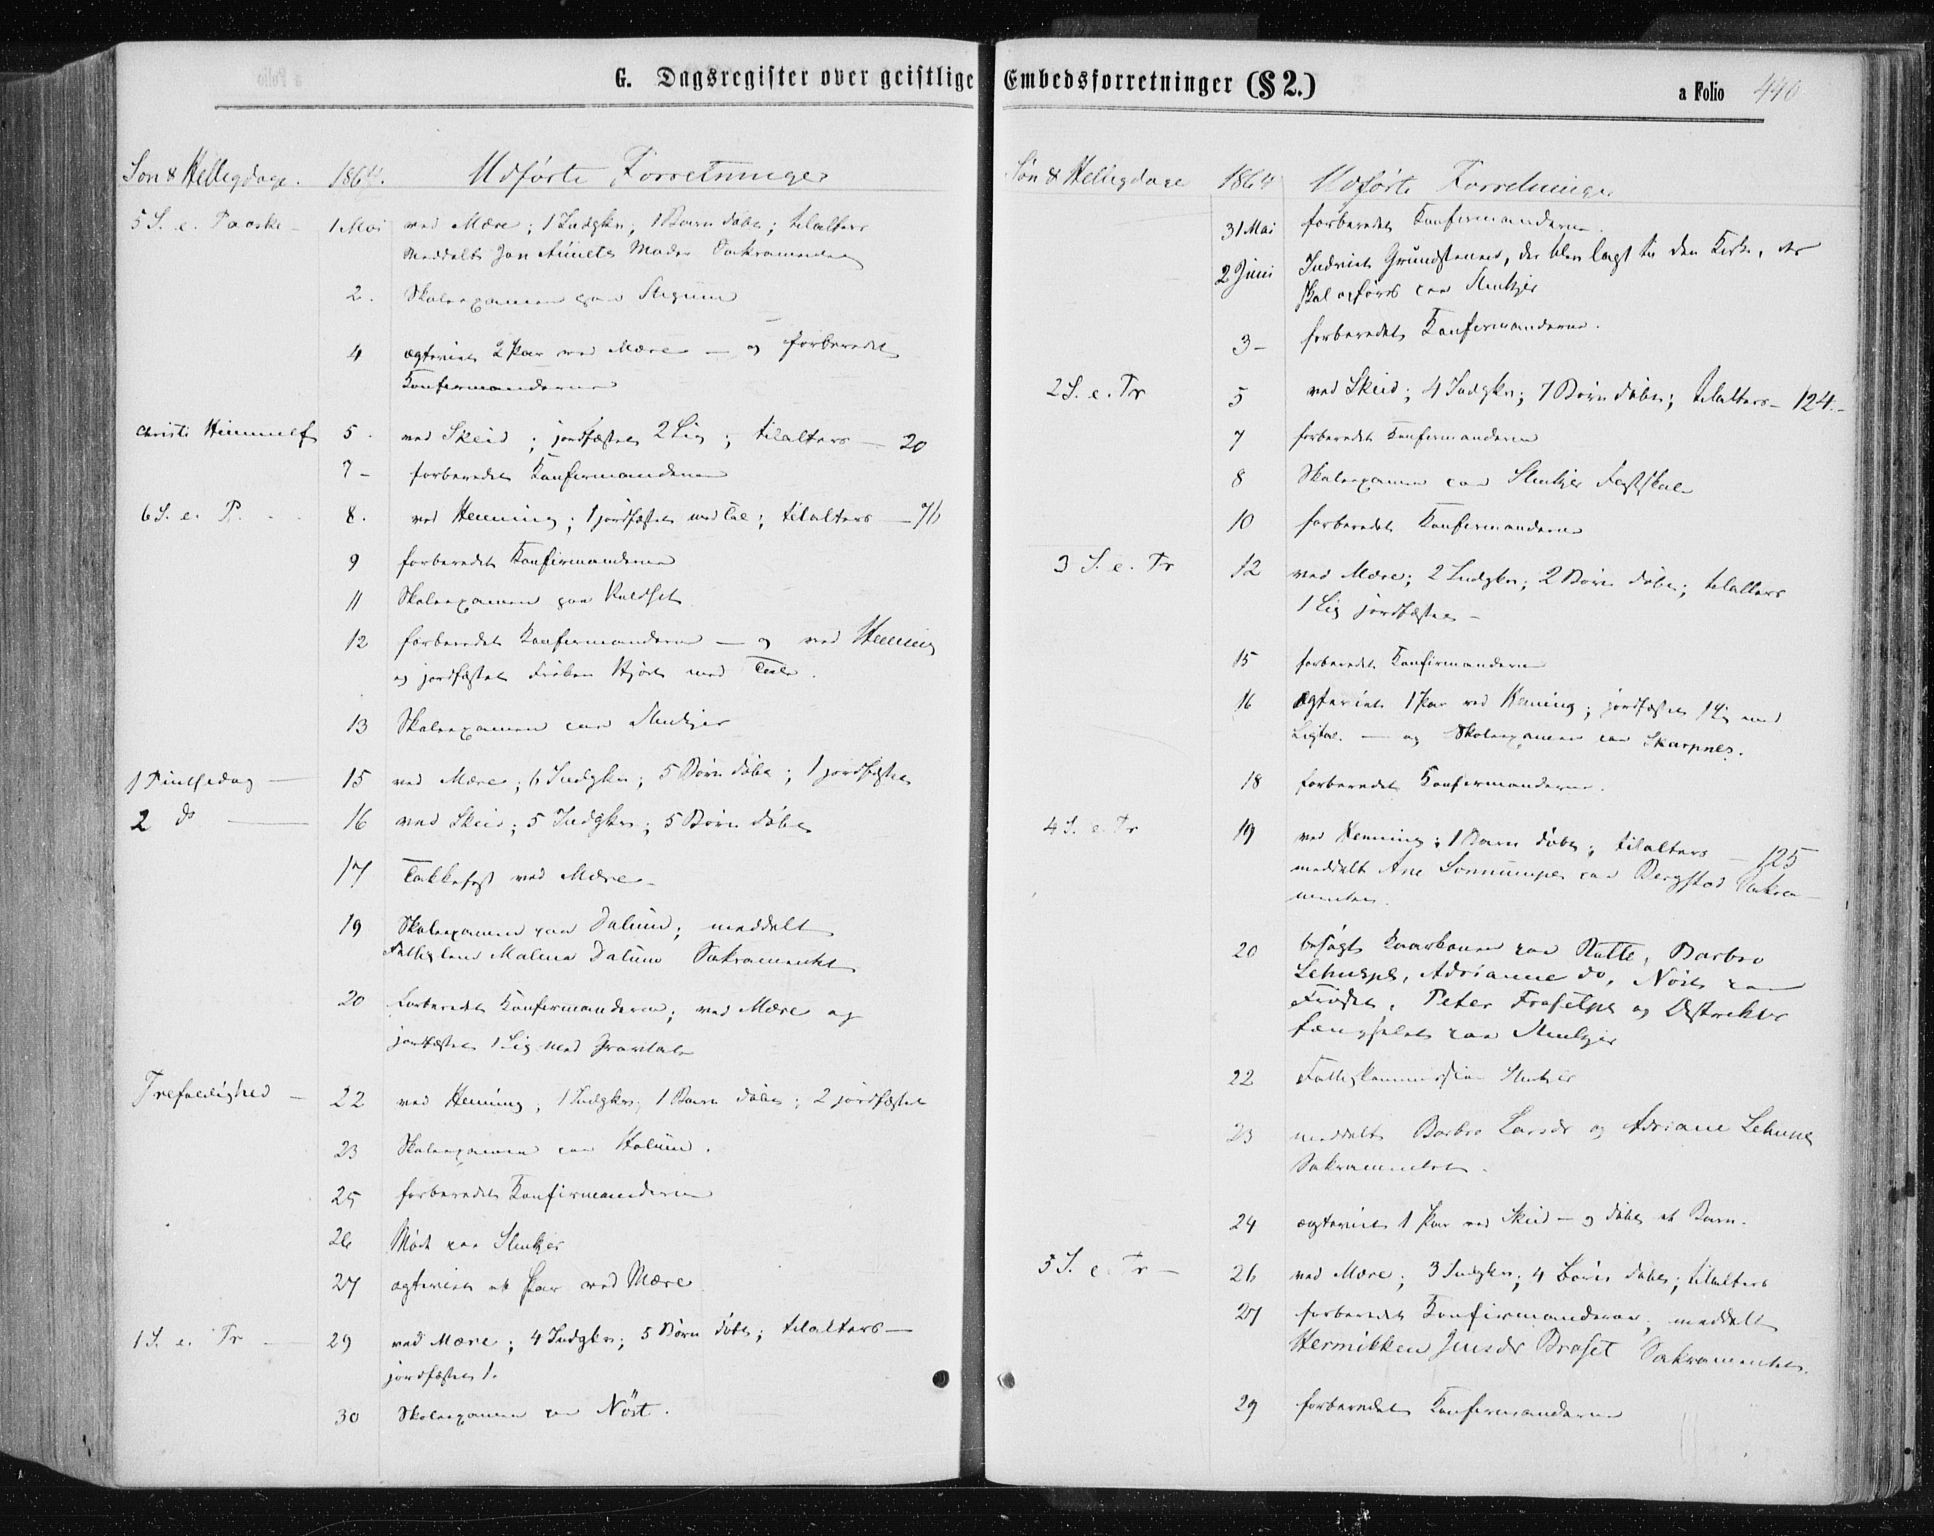 G. Dagsregister over geistlige Embedsforretninger (§ 2.)
a Folio 440
Søn & Helligdage. 1864. Udførte Forretninger
5 S. e. Paaske - 1 Mai ved Mære; 1 Indgkn; 1 Barn døbt; tilalters
Meddelt Jon Moder Sakramentet
2. Skoleexamen paa
4 ægteviet 2 Par ved Mære - og forberedet
Konfirmanderne
Christi Himmelf 5. ved Skeid; jordfæstet 2 Lig; tilalters - 20
7 - forberedet Konfirmanderne
6 S. e. P. 8. ved Henning; 1 jordfæstet med Tale; tilalters - 76
9 forberedet Konfirmanderne
11 Skoleexamen paa
12 forberedet Konfirmanderne - og ved Henning
og jordfæstet Frøken Hjort med Tale.
13 Skoleexamen paa Stenkjer
1 Pintsedag - 15 ved Mære; 6 Indgkn; 5 Børn døbt; 1 jordfæstet
2 do - 16 ved Skeid; 5 Indgkn; 5 Børn døbt
17 Takkefest ved Mære -
19 Skoleexamen paa Dalum; meddelt
Malena Dalum Sakramentet
20 forberedet Konfirmanderne; ved Mære og
jordfæstet 1 Lig med
Trefoldighed - 22 ved Henning; 1 Indgkn; 1 Barn døbt; 2 jordfæstet
23 Skoleexamen paa
25 forberedet Konfirmanderne
26 Møde paa Stenkjer
27 ægteviet et Par ved Mære
1 S. e. Tr - 29 ved Mære; 4 Indgkn; 5 Børn døbt; tilalters -
jordfæstet 1.
30 Skoleexamen paa Nöst.
Søn & Helligdage 1864 Udførte Forretninger
31 Mai forberedet Konfirmanderne.
2 Juni Indviet Grundstenen, der blev lagt til den Kirke, der
skal opføres paa Stenkjer
3 - forberedet Konfirmanderne.
2 S. e. Tr 5 ved Skeid; 4 Indgkn; 7 Børn døbt; tilalters - 124 -
7 forberedet Konfirmanderne
8 Skoleexamen paa Stenkjer Fastskole
10 forberedet Konfirmanderne
3 S. e. Tr 12 ved Mære; 2 Indgkn; 2 Børn døbt; tilalters
1 Lig jordfæstet -
15 forberedet Konfirmanderne
16 ægteviet 1 Par ved Henning; jordfæstet 1 Lig med
Ligtale. - og Skoleexamen paa Skarpnes.
18 forberedet Konfirmanderne.
4 S. e. Tr 19 ved Henning; 1 Barn døbt; tilalters - 125
meddelt Ane paa Bergstad Sakra-
mentet.
20 besøgt paa Barbro
Adrianne do, Nöst paa
Peter og Distrikts
fængslet paa Stenkjer
22 Fattigkommission Stenkjer
23 meddelt Barbro Larsdr og Adriane
Sakramentet.
24 ægteviet 1 Par ved Skeid - og døbt et Barn.
5 S. e. Tr - 26 ved Mære; 3 Indgkn; 4 Børn døbt; tilalters
27 forberedet Konfirmanderne; meddelt
Hermikken Jensdr Braset Sakramentet.
29 forberedet Konfirmanderne